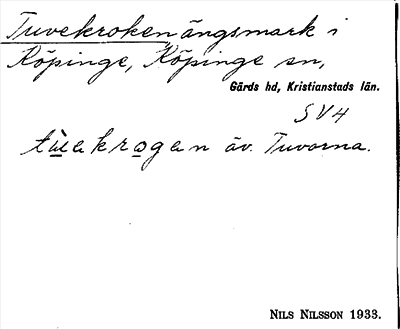 Tuvekroken ängsmark i
Köpinge, Köpinge sn,
Gärds hd, Kristianstads län.
SV4
tùekrogen äv. Tuvorna.
NILS NILSSON 1933.